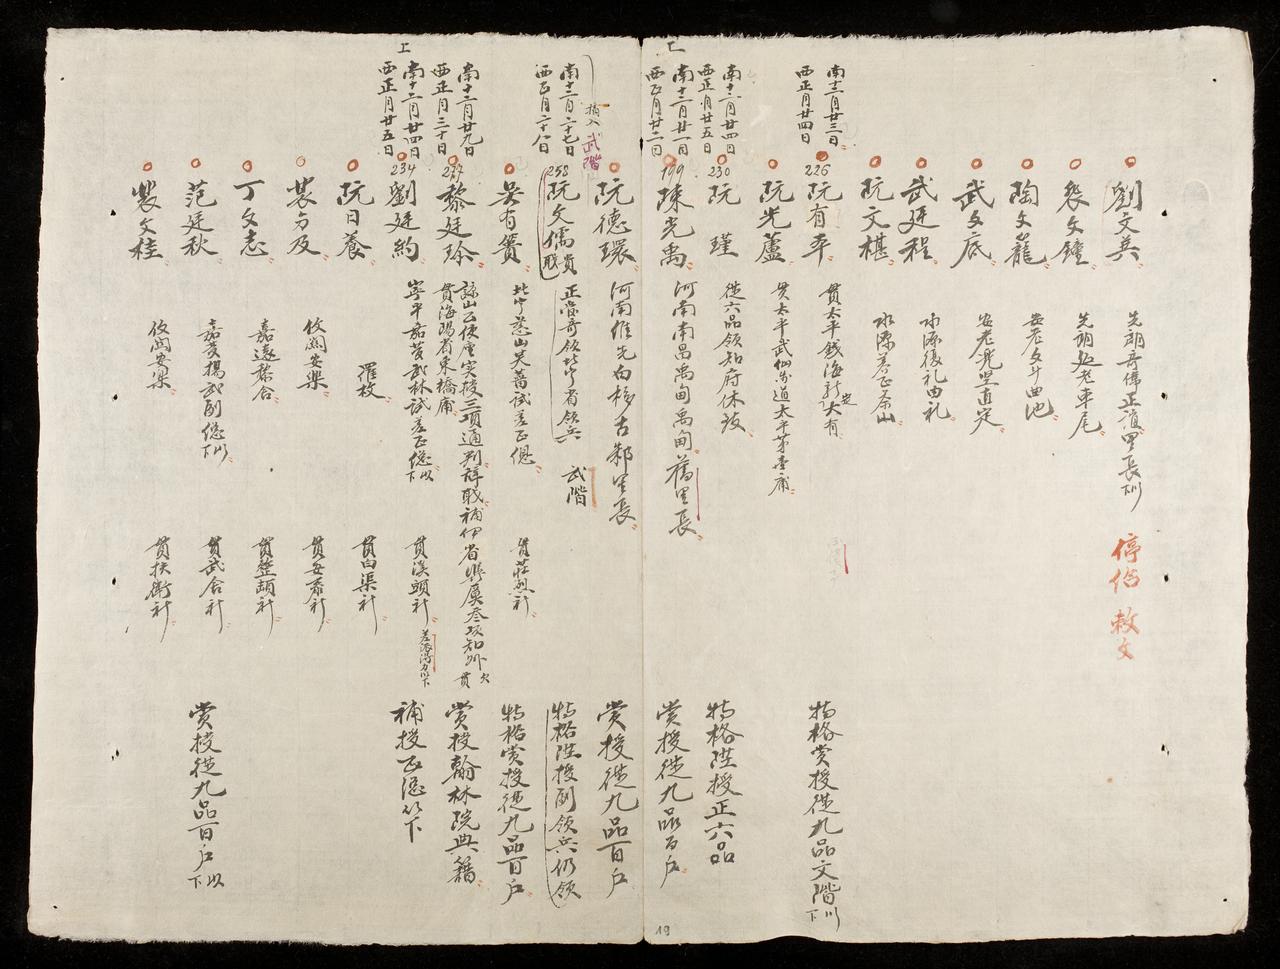 劉文兵
先朗哥佛正演甲長
停給敕文
裴文鐘
先朗超老車尾
陶文籠
安老文斗曲池
武文底
安老堅直定
武廷程
水源復礼由礼
阮文椹
水源善正奈山
南十二月廿三日
西正月廿四日
226
阮有率
貫太平錢海新安大有
特格賞授從九品文階
阮光蘆
貫太平武仙芳道太平第壹甫
南十二月廿四日
西正月廿五日
230
阮瑾
從六品領知府休致
特格陞授正六品
上
南十二月廿一日
西正月廿二日
199
陳光禹
河南南昌禹甸禹甸舊里長
賞授從九品百戶
阮德環
河南維先白移古鄒里長
賞授從九品百戶
摘入武階
南十二月二十七日
西正月二十八日
258
阮文儒
正壹奇領北寧省領兵
武階
特格陞授副領兵仍領
吳有簀
北寧慈山芙蕾試差正總
貫莊烈社
特格賞授從九品百戶
南十二月廿九日
西正月三十日
277
黎廷珍
諒山公使座實授三項通判辞職補伊省
貫海陽省東橋甫
賞授翰林院典籍
上
南十二月廿四日
西正月廿五日
234
劉廷約
寧平嘉菱武林試差正總以下
貫溪頭社
補授正總以下
阮日養
羅枚
貫白渠社
裴方及
攸闕安樂
貫安泰社
丁文志
嘉遠黎合
貫塋頭社
范廷秋
嘉菱楊武副總以下
貫武舍社
賞授從九品百戶以下
裴文桂
攸闕安樂
貫扶衛社
19